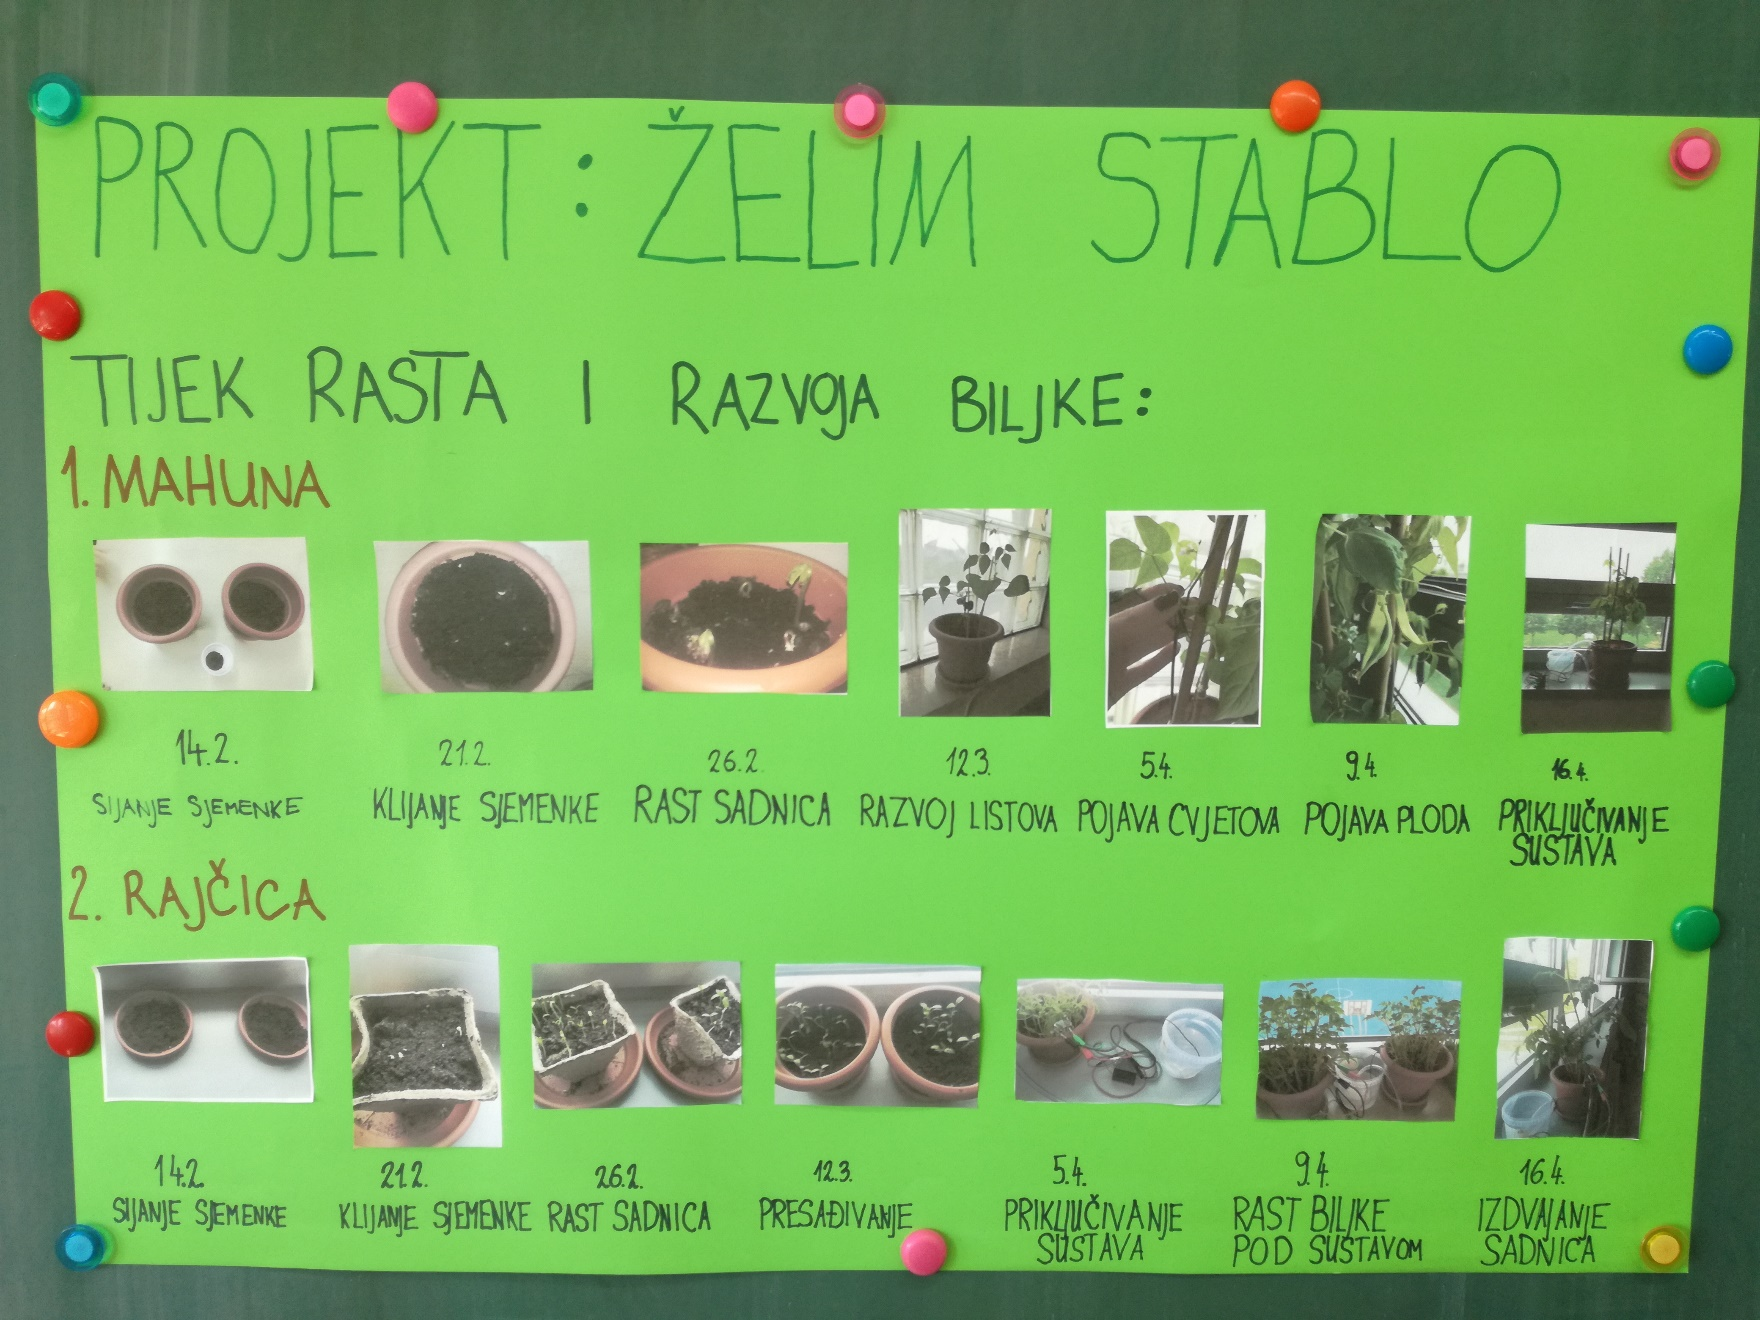 PROJEKT: ŽELIM STABLO
TIJEK RASTA I RAZVOJA BILJKE:
1. MAHUNA
14.2.
SIJANJE SJEMENKE
21.2.
KLIJANJE SJEMENKE
26.2.
RAST SADNICA
12.3.
RAZVOJ LISTOVA
5.4.
POJAVA CVJETOVA
9.4.
POJAVA PLODA
16.4.
PRIKLJUČIVANJE
SUSTAVA
2. RAJČICA
14.2.
SIJANJE SJEMENKE
21.2.
KLIJANJE SJEMENKE
26.2.
RAST SADNICA
12.3.
PRESAĐIVANJE
5.4.
PRIKLJUČIVANJE
SUSTAVA
9.4.
RAST BILJKE
POD SUSTAVOM
16.4.
IZDVAJANJE
SADNICA